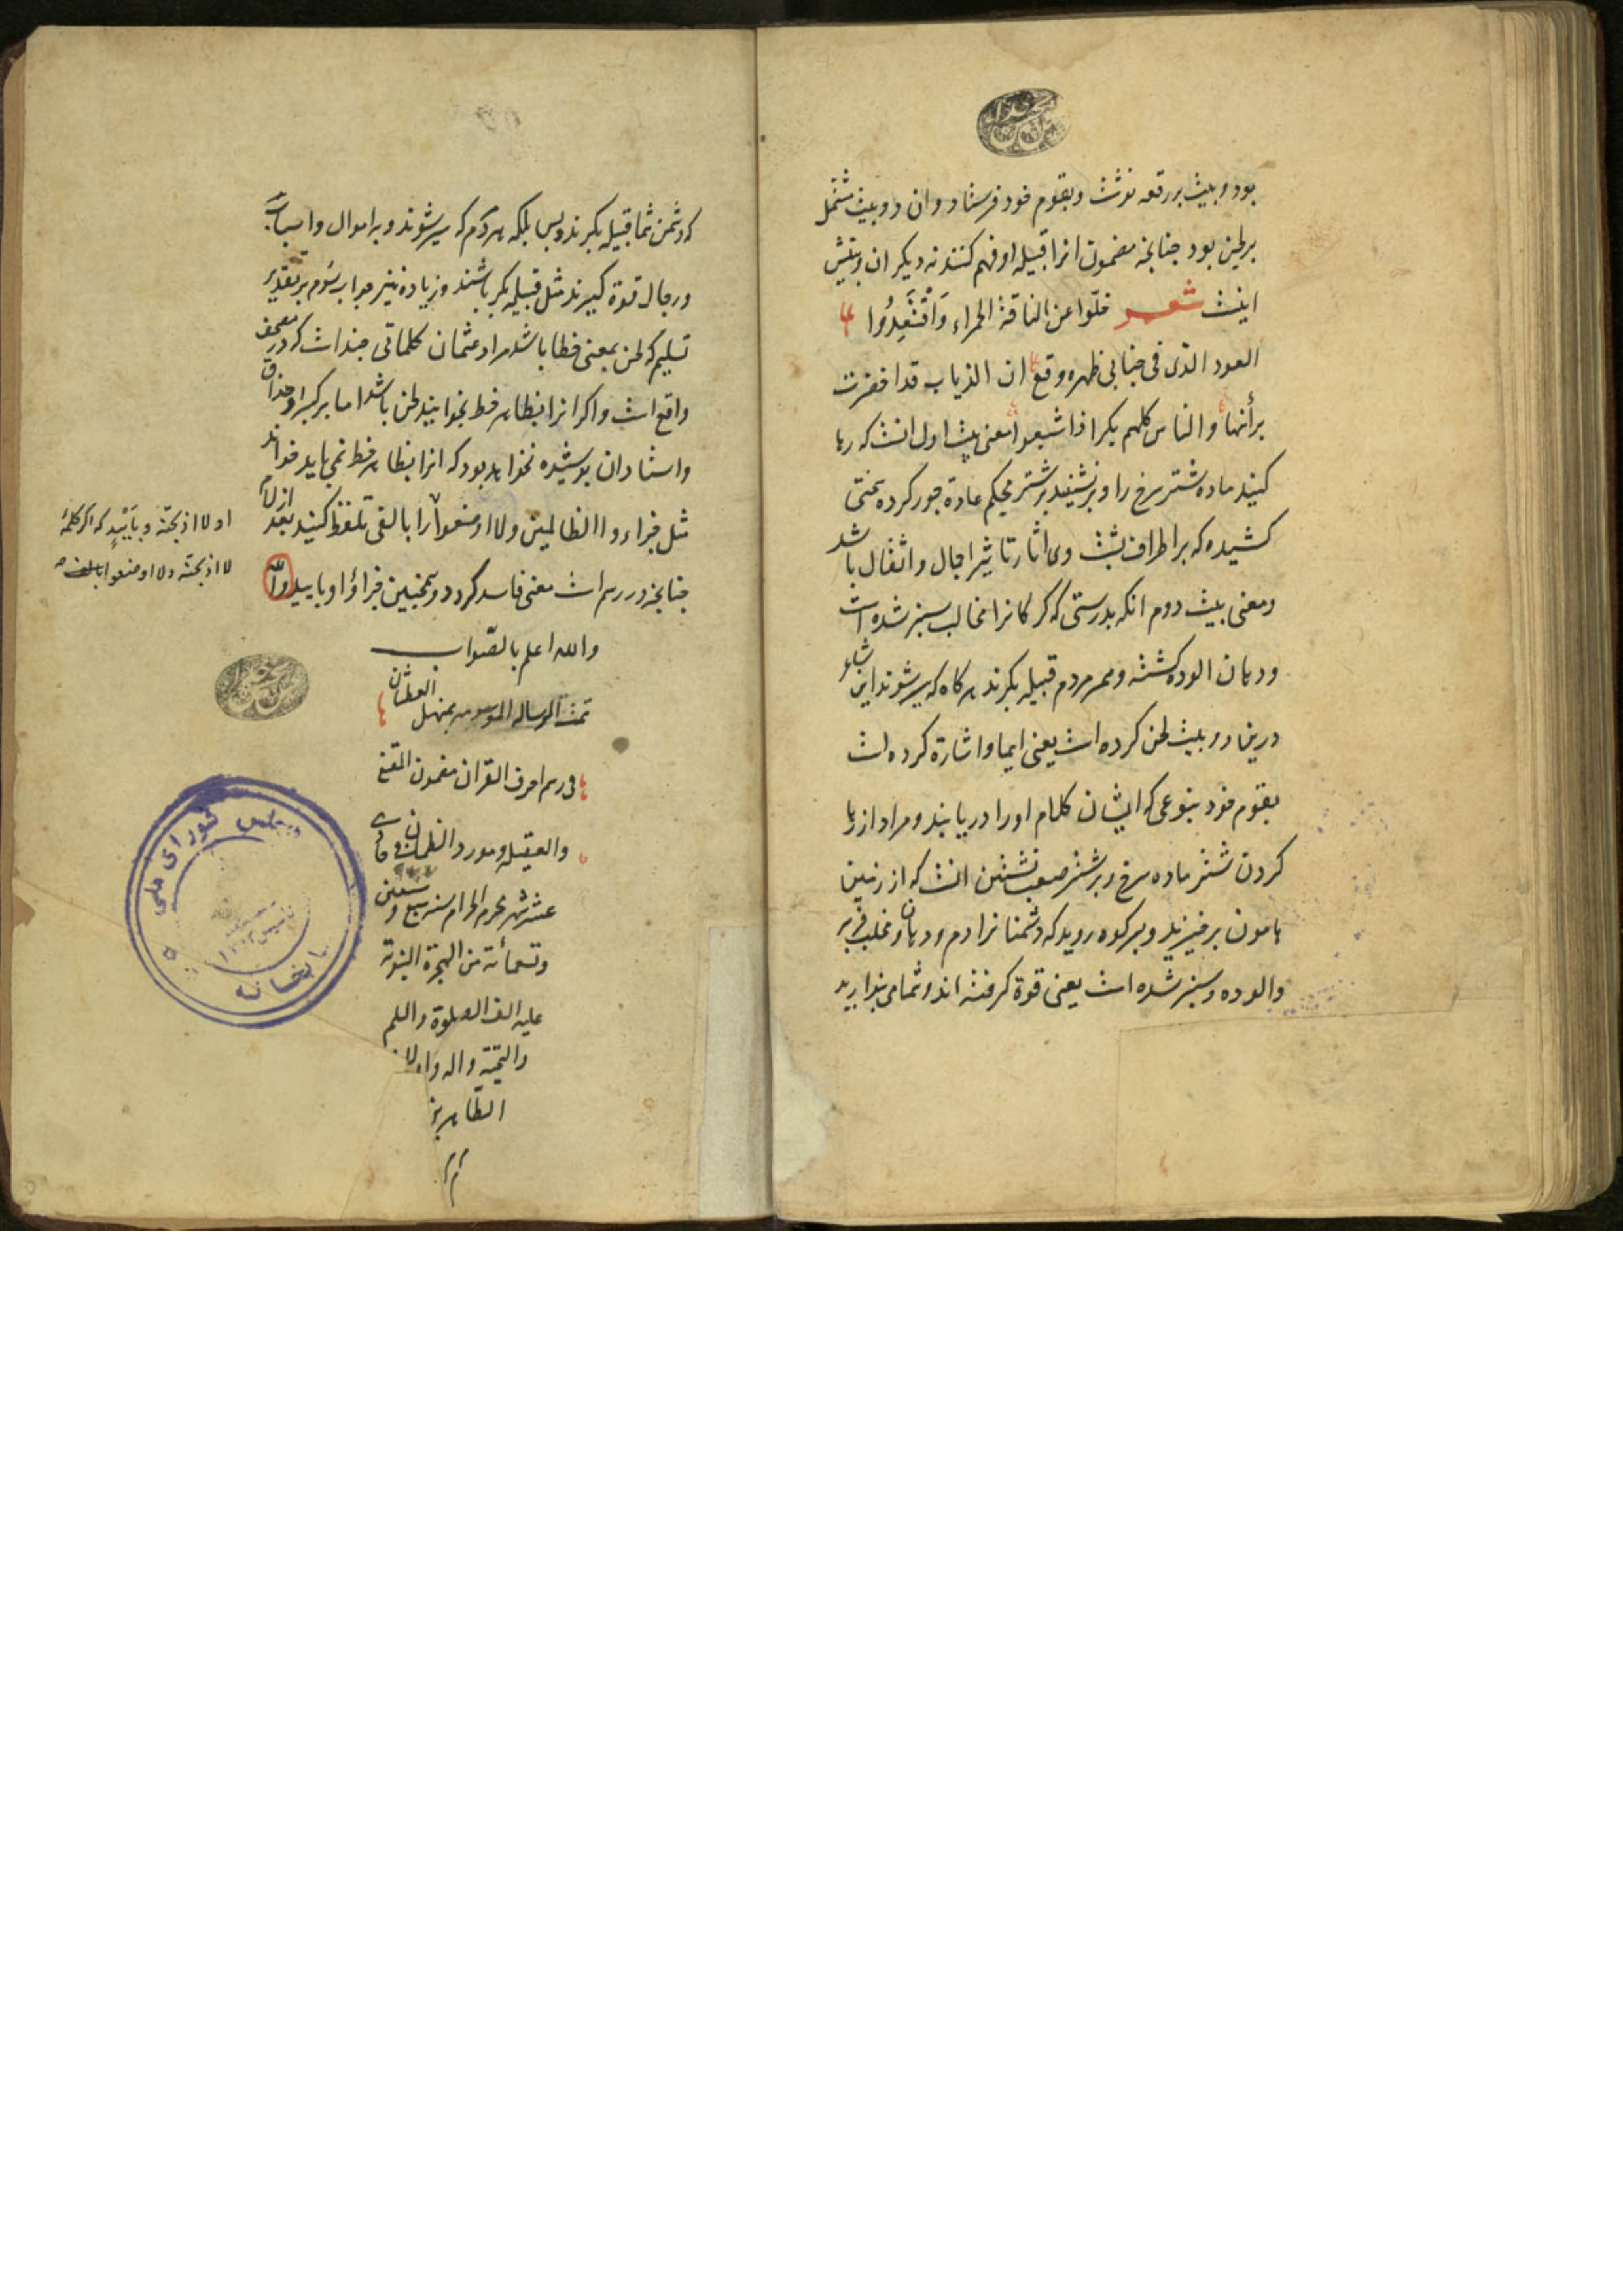 بود و بیت بر رقعه نوشت و بقوم خود فرستاد و ان دو بیت مشتمل
بر لحن بود چنانچه مضمون انرا قبیله او فهم کنند نه دیکران و بیتش
اینست شعر خلّوا عن الناقة الحمراء وَاقْتَعِدُوا
العود الذی فی جنابی ظهره وقع ان الذیاب قد اخضرت
براثنها والناس کلهم بکر اذا شبعوا معنی بیت اول انست که رها
کنید ماده شتر سرخ را و برنشینید بر شتر محکم عادة جور کرده سختی
کشیده که بر اطراف پشت وی اثار تاثیر اجال و اثقال باشد
و معنی بیت دوم انکه بدرستی که کرکانرا مخالب سبز شده است
و دهان الوده کشته و همه مردم قبیله بکرند هر کاه که سیر شوند این شاعر
درین دو بیت لحن کرده است یعنی ایما و اشارة کرده است
بقوم خود بنوعی که ایشان کلام او را دریابند و مراد از رها
کردن شتر ماده سرخ و بر شتر صعب نشستن انست که از زمین
هامون برخیزید و بر کوه روید که دشمنانرا دم و دهان و مخلب چرب
والوده و سبز شده است یعنی قوة کرفته اند و شما می پندارید
که دشمن شما قبیله بکرند و بس بلکه هر مردم که سیر شوند و بر اموال و اسباب
و رجال قوة کیرند مثل قبیله بکر باشند و زیاده نیز جواب سَوم بر تقدیر
تسلیم که لحن بمعنی خطا باشد مراد عثمان کلماتی چند است که در مصحف
واقع است و اکر انرا بظاهر خط بخوانند لحن باشد اما بر کبرا و حذاق
و استادان پوشیده نخواهد بود که انرا بظاهر خط نمی باید خواند
مثل جزاء و االظالمین و لا اوضعوا را با الفی تلفظ کنند بعد از لام
چنانچه در رسم است معنی فاسد کردد و همچنین جزاؤا و باییید والله
او لا اذبحنّه و بِاَیْیدٍ که اکر کلمهٔ
لا اذبحنه و لا اوضعوا بالف
والله اعلم بالصّواب
تمت الرساله الموسومه بمنهل العطشان
فی رسم احرف القران مضمون المقنع
والعقیله و مورد الظمان فی حادی
عشر شهر محرم الحرام سنه سبع و سبعین
و تسعمائة من الهجرة النبویة
علیه الف الصلوة والسلم
والتحیّة واله و اولاده
الطّاهرین
م م م
مجلس شورای ملی
کتابخانه